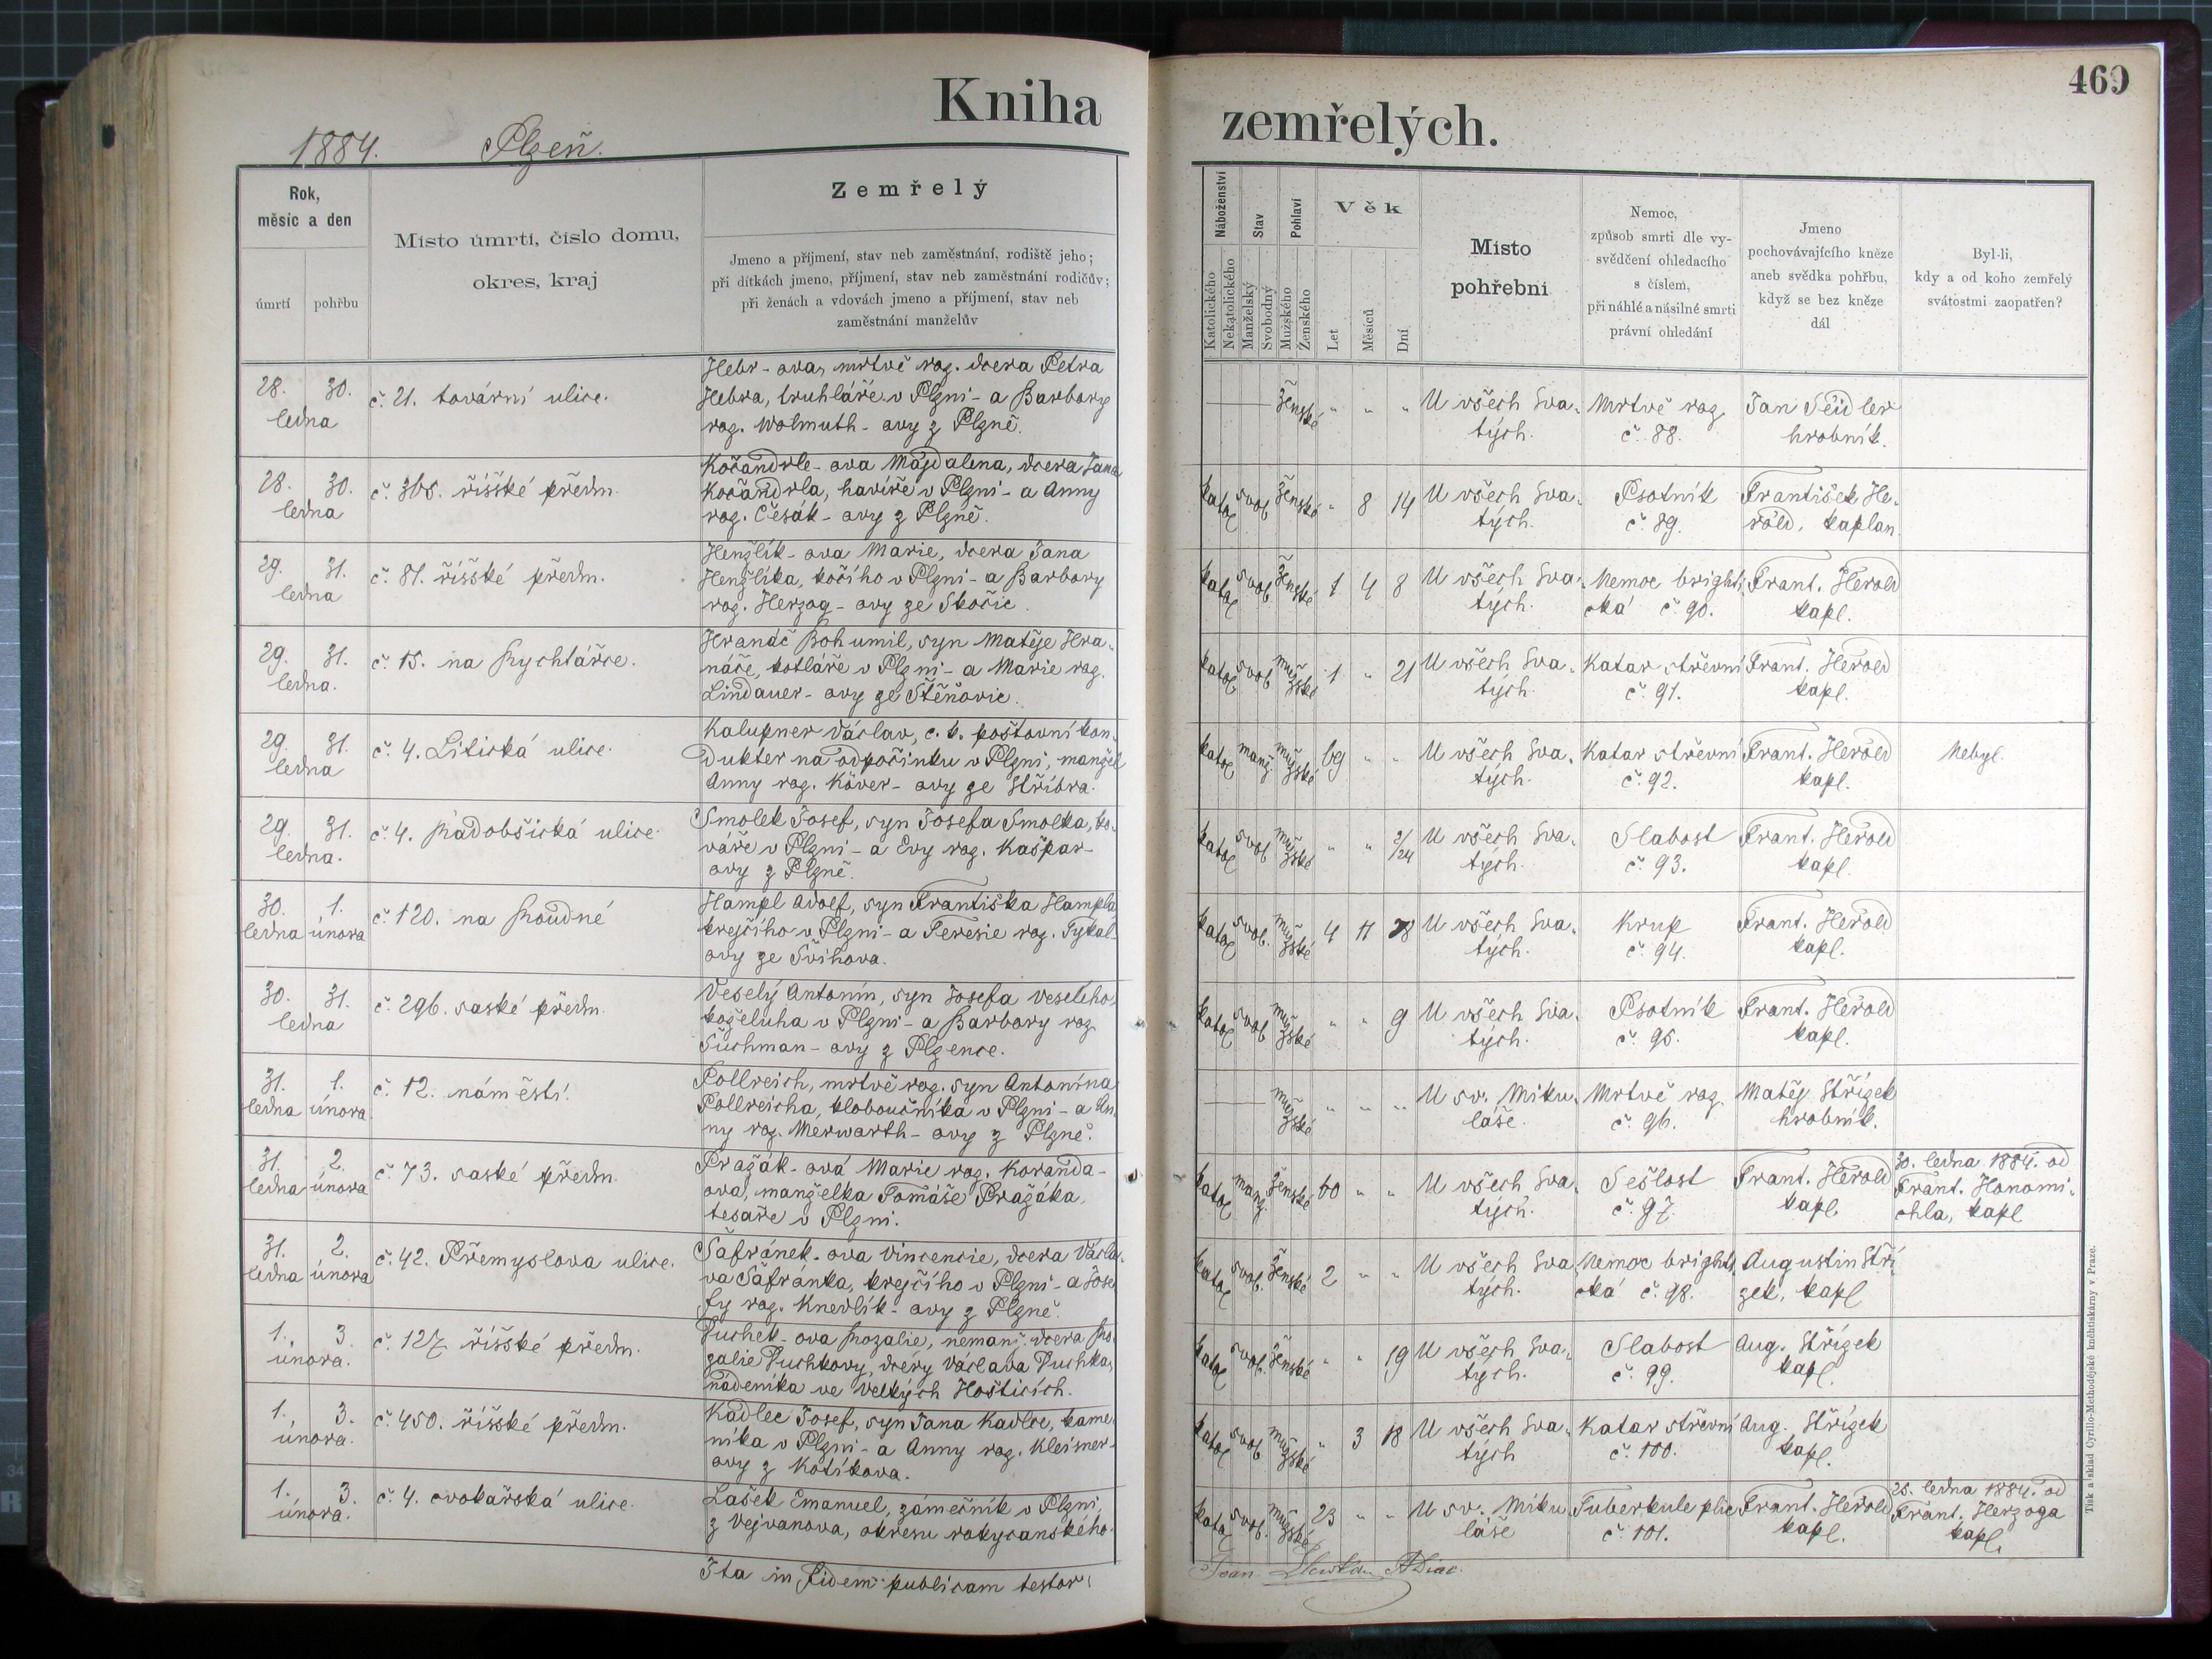 Kniha
zemřelých.
469
1884. Plzeň.
Rok,
měsíc a den
úmrtí
pohřbu
Místo úmrtí, číslo domu,
okres, kraj
Zemřelý
Jmeno a příjmení, stav neb zaměstnání, rodiště jeho;
při dítkách jmeno, příjmení, stav neb zaměstnání rodičův;
při ženách a vdovách jmeno a příjmení, stav neb
zaměstnání manželův
Náboženství
Katolického
Nekatolického
Stav
Manželský
Svobodný
Pohlaví
Mužského
Ženského
Věk
Let
Měsíců
Dní
Místo
pohřební
Nemoc,
způsob smrti dle vy-
svědčení ohledacího
s číslem,
při náhlé a násilné smrti
právní ohledání
Jmeno
pochovávajícího kněze
aneb svědka pohřbu,
když se bez kněze
dál
Byl-li,
kdy a od koho zemřelý
svátostmi zaopatřen?
28. 30.
ledna
č. 21. tovární ulice.
Hebr-ova, mrtvě roz. dcera Petra
Hebra, truhláře v Plzni - a Barbory
roz. Wolmuth-ovy z Plzně.
ženské " " "
U všech Sva-
tých.
Mrtvě roz.
č. 88.
Jan Seidler
hrobník.
28. 30.
ledna
č. 365. říšské předm.
Kočandrle-ova Magdalena, dcera Jana
Kočandrla, havíře v Plzni - a Anny
roz. Česák-ovy z Plzně.
katol svob ženské " 8 14
U všech Sva-
tých.
Psotník
č. 89.
František He-
rold, kaplan.
29. 31.
ledna
č. 81. říšské předm.
Henžlík-ova Marie, dcera Jana
Henžlíka, kočího v Plzni - a Barbory
roz. Herzog-ovy ze Skočic.
katol svob ženské 1 4 8
U všech Sva-
tých.
Nemoc brighti-
cká č. 90.
Frant. Herold
kapl.
29. 31.
ledna.
č. 15. na Rychtářce.
Hranáč Bohumil, syn Matěje Hra-
náče, kotláře v Plzni - a Marie roz.
Lindauer-ovy ze Štěňovic.
katol svob mužské 1 " 21
U všech Sva-
tých.
Katar střevní
č. 91.
Frant. Herold
kapl.
29. 31.
ledna
č. 4. Litická ulice.
Kalupner Václav, c. k. poštovní kon-
dukter na odpočinku v Plzni, manžel
Anny roz. Köver-ovy ze Stříbra.
katol manž mužské 69 " "
U všech Sva-
tých.
Katar střevní
č. 92.
Frant. Herold
kapl.
Nebyl.
29. 31.
ledna.
č. 4. Radobšická ulice.
Smolek Josef, syn Josefa Smolka, ko-
váře v Plzni - a Evy roz. Kašpar-
ovy z Plzně.
katol svob mužské " " 2/24
U všech Sva-
tých.
Slabost
č. 93.
Frant. Herold
kapl.
30. 1.
ledna února
č. 120. na Roudné
Hampl Adolf, syn Františka Hampla
krejčího v Plzni - a Teresie roz. Tykal-
ovy ze Švihova.
katol svob. mužské 4 11 28
U všech Sva-
tých.
Krup
č. 94.
Frant. Herold
kapl.
30. 31.
ledna
č. 296. saské předm.
Veselý Antonín, syn Josefa Veselého,
koželuha v Plzni - a Barbory roz.
Šuchman-ovy z Plzence.
katol svob mužské " " 9
U všech Sva-
tých.
Psotník
č. 95.
Frant. Herold
kapl.
31. 1.
ledna února.
č. 12. náměstí.
Pollreich, mrtvě roz. syn Antonína
Pollreicha, kloboučníka v Plzni - a An-
ny roz. Merwarth-ovy z Plzně.
mužské " " "
U sv. Miku-
láše.
Mrtvě roz.
č. 96.
Matěj Střízek
hrobník.
31. 2.
ledna února
č. 73. saské předm.
Pražák-ová Marie roz. Koranda-
ova, manželka Tomáše Pražáka,
tesaře v Plzni.
katol manž ženské 60 " "
U všech Sva-
tých.
Sešlost
č. 97.
Frant. Herold
kapl.
30. ledna 1884. od
Frant. Honomi-
chla, kapl
31. 2.
ledna února
č. 42. Přemyslova ulice.
Šafránek-ova Vincencie, dcera Václa-
va Šafránka, krejčího v Plzni - a Jose-
fy roz. Knedlík-ovy z Plzně.
katol svob. ženské 2 " "
U všech Sva-
tých.
Nemoc brighti-
cká č. 98.
Augustin Stří-
zek, kapl
1. 3.
února.
č. 127. říšské předm.
Puchek-ova Rozalie, nemanž. dcera Ro-
zalie Puchkovy, dcéry Václava Puchka,
nádeníka ve Velkých Hošticích.
katol svob. ženské " " 19
U všech Sva-
tých.
Slabost
č. 99.
Aug. Střízek
kapl.
1. 3.
února.
č. 450. říšské předm.
Kadlec Josef, syn Jana Kadlce, kame-
níka v Plzni - a Anny roz. Kleisner-
ovy z Kotíkova.
katol svob mužské " 3 18
U všech Sva-
tých
Katar střevní
č. 100.
Aug. Střízek
kapl.
1. 3.
února.
č. 4. cvokařská ulice.
Lašek Emanuel, zámečník v Plzni,
z Vejvanova, okresu rokycanského.
katol svob. mužské 23 " "
U sv. Miku-
láše
Tuberkule plic
č. 101.
Frant. Herold
kapl.
25. ledna 1884. od
Frant. Herzoga
kapl.
Ita in fidem publicam testor:
Joan. ADiac.
Tisk a sklad Cyrillo-Methodějské knihtiskárny v Praze.